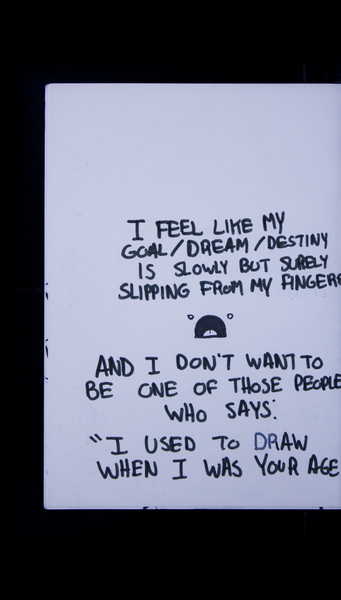 I FEEL LIKE MY
GOAL/DREAM/DESTINY
IS SLOWLY BUT SURELY
SLIPPING FROM MY FINGERS
AND I DON'T WANT TO
BE ONE OF THOSE PEOPLE
WHO SAYS:
"I USED TO DRAW
WHEN I WAS YOUR AGE